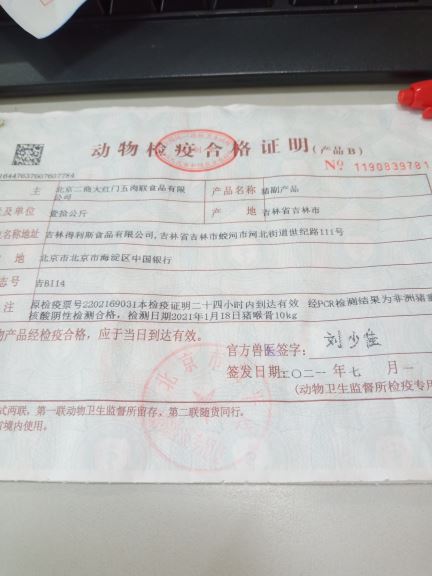 动物检疫合格证明(产品B)
№ 1190839781
1644763760760​7784
主 北京二商大红门五肉联食品有限公司 产品名称 猪副产品
及单位 壹拾公斤 产 地 吉林省吉林市
名称地址 吉林得利斯食品有限公司,吉林省吉林市蛟河市河北街道世纪路111号
地 北京市北京市海淀区中国银行
志号 吉BI14
注 原检疫票号2202169031本检疫证明二十四小时内到达有效 经PCR检测结果为非洲猪
核酸阴性检测合格,检测日期2021年1月18日猪喉骨10kg
物产品经检疫合格,应于当日到达有效。
官方兽医签字:
签发日期:二〇二一年七月一
(动物卫生监督所检疫专用
式两联,第一联动物卫生监督所留存,第二联随货同行。
境内使用。
北京市